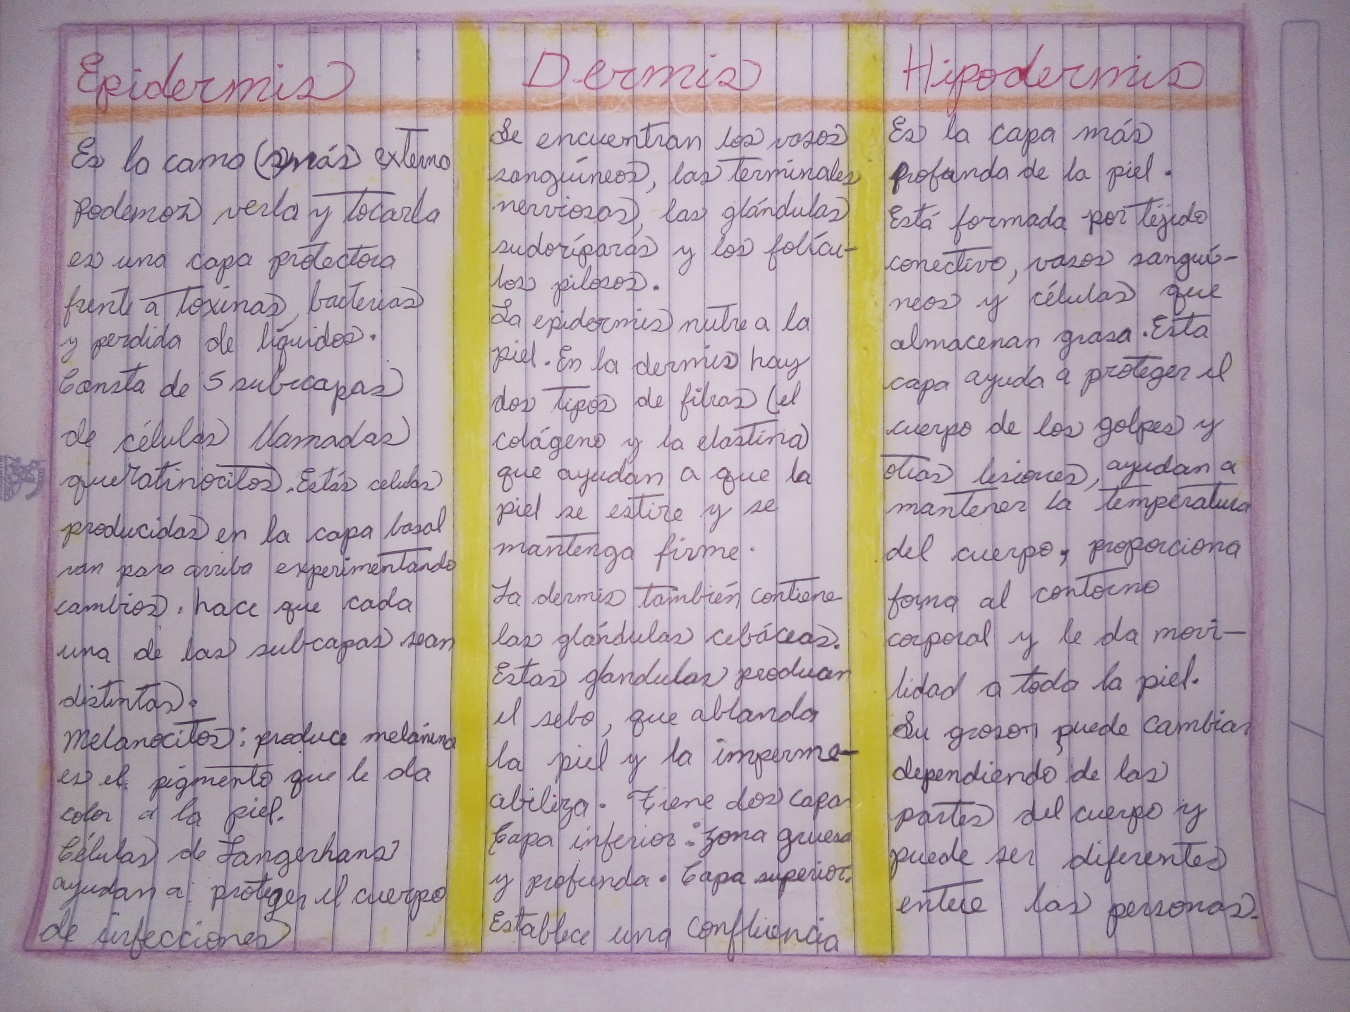 Epidermis
Es la cama (más externo
podemos verla y tocarla
es una capa protectora
frente a toxinas, bacterias
y perdida de líquidos.
Consta de 5 sub-capas
de células llamadas
queratinocitos. Estás celulas
producidas en la capa basal
van para arriba experimentando
cambios. hace que cada
una de las subcapas sean
distintas.
Melanocitos: produce melánina
es el pigmento que le da
color a la piel.
Células de Langerhans
ayudan a proteger el cuerpo
de infecciones
Dermis
Se encuentran los vasos
sanguíneos, las terminales
nerviosas, las glándulas
sudoríparas y los folícu-
los pilosos.
La epidermis nutre a la
piel. En la dermis hay
dos tipos de fibras (el
colágeno y la elastina)
que ayudan a que la
piel se estire y se
mantenga firme.
La dermis también contiene
las glándulas cebáceas.
Estas glandulas producen
el sebo, que ablanda
la piel y la imperme-
abiliza. Tiene dos capas
Capa inferior: zona gruesa
y profunda. Capa superior.
Establece una confluencia
Hipodermis
Es la capa más
profunda de la piel.
Está formada por téjido
conectivo, vasos sanguí-
neos y células que
almacenan grasa. Esta
capa ayuda a proteger el
cuerpo de los golpes y
otras lesiones, ayudan a
mantener la temperatura
del cuerpo, proporciona
forma al contorno
corporal y le da movi-
lidad a toda la piel.
Su grosor puede cambiar
dependiendo de las
partes del cuerpo y
puede ser diferentes
entre las personas.